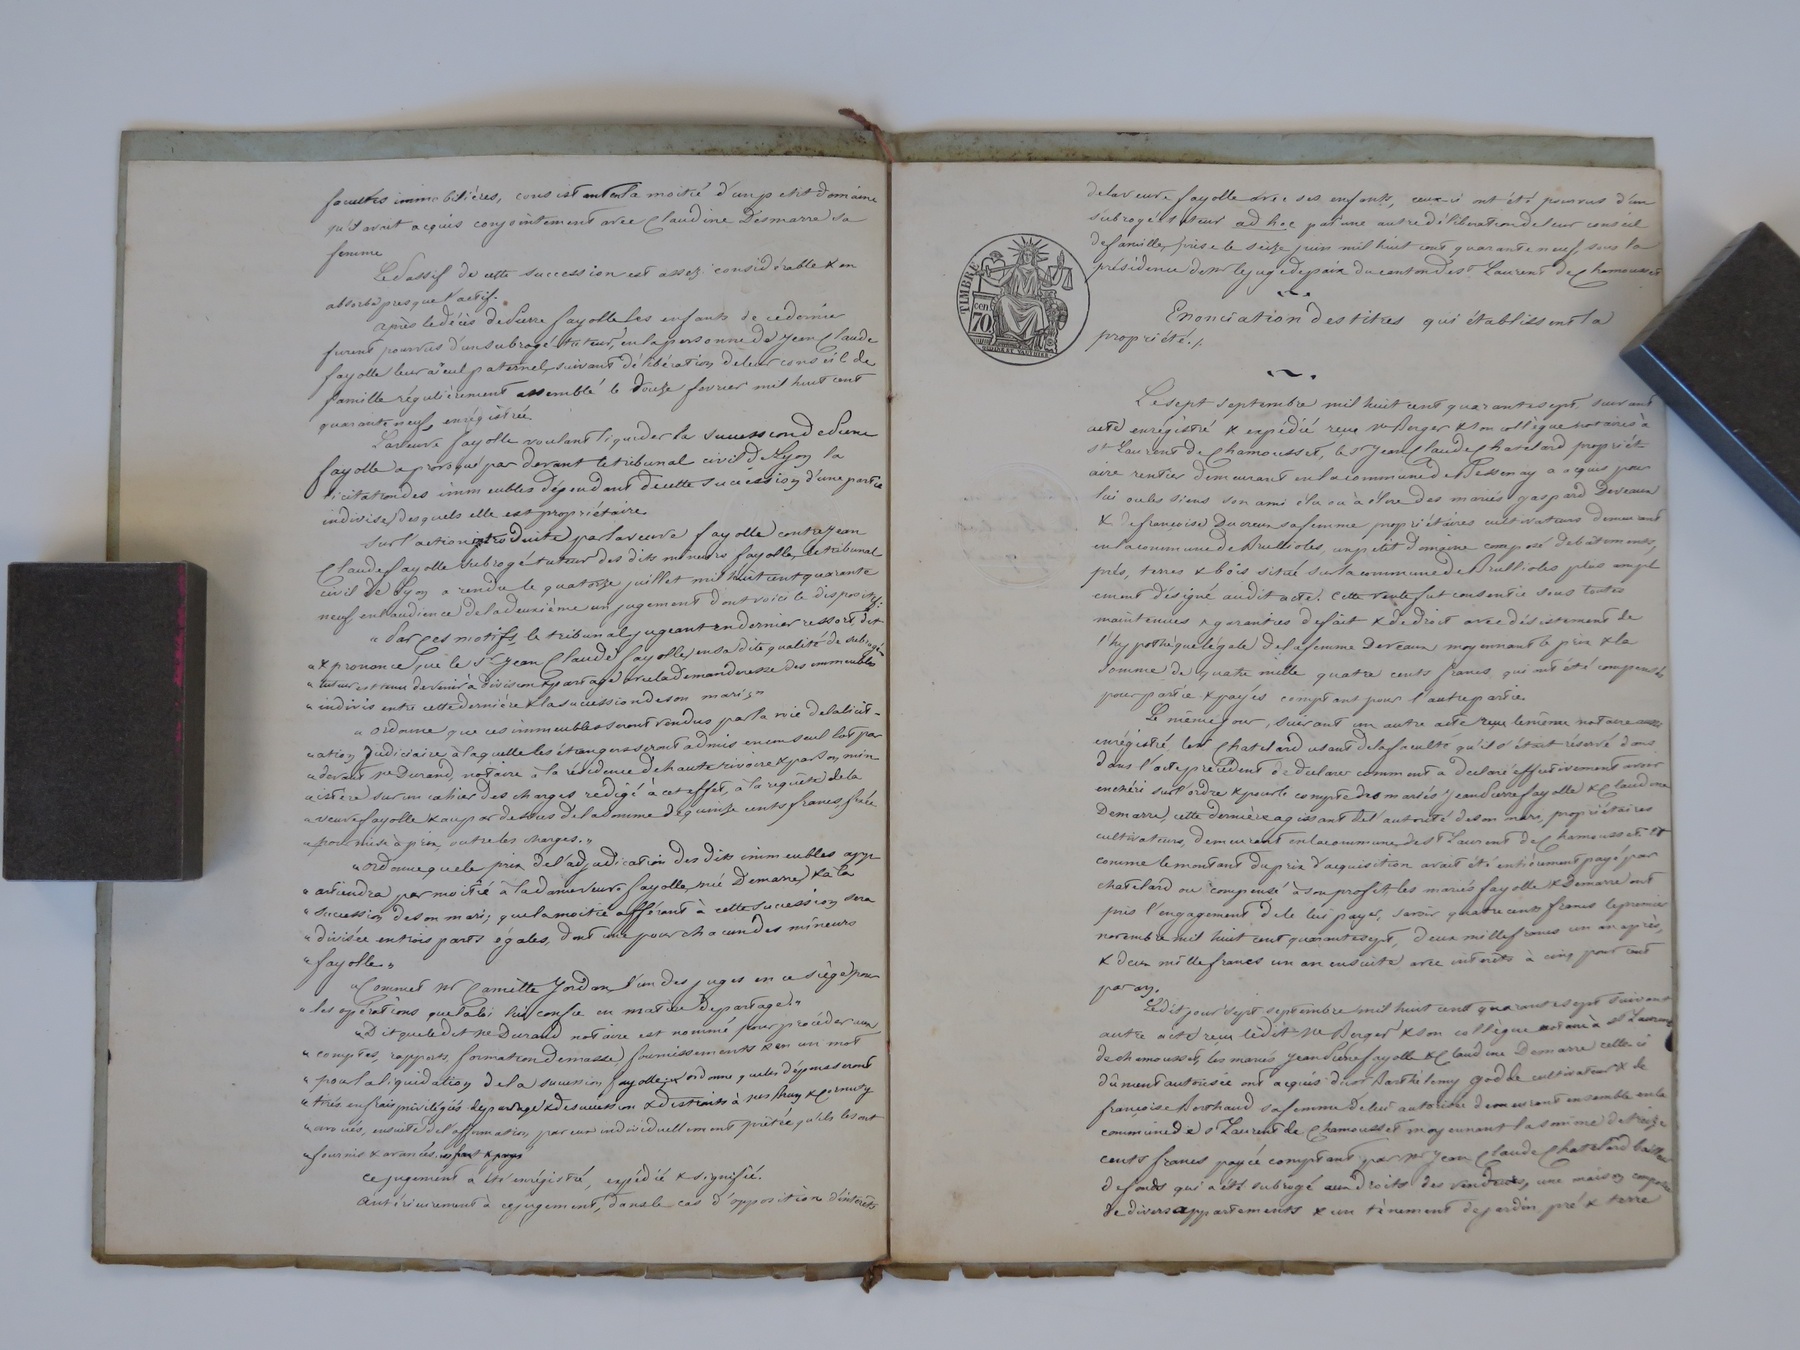 facultés immobilières, consistant en la moitié d'un petit domaine
qu'il avait acquis conjointement avec Claudine Demarre sa
femme
Le Passif de cette succession est assez considérable & en
absorbe presque l'actif.
Après le décès de Pierre fayolle les enfants de ce dernier
furent pourvus d'un subrogé tuteur, en la personne de Jean Claude
fayolle leur aïeul paternel, suivant délibération de leur conseil de
famille régulièrement assemblé le douze février mil huit cent
quarante neuf, enrégistrée.
La veuve fayolle voulant liquider la succession de Pierre
fayolle a provoqué par devant le tribunal civil de Lyon la
licitation des immeubles dépendant de cette succession, d'une partie
indivise desquels elle est propriétaire.
Sur l'action introduite par la veuve fayolle contre Jean
Claude fayolle subrogé tuteur des dits mineurs fayolle, le tribunal
civil de Lyon a rendu le quatorze juillet mil huit cent quarante
neuf en l'audience de la deuxième un jugement dont voici le dispositif:
" Par ces motifs, le tribunal jugeant en dernier ressort, dit
" & prononce que le Sr Jean Claude fayolle, en sa dite qualité de subrogé
" tuteur est tenu de venir à division & partage avec la demanderesse des immeubles
" indivis entre cette dernière & la succession de son mari; "
" ordonne que ces immeubles seront vendus par la voie de la licit-
" ation Judiciaire, à laquelle les étrangers seront admis en un seul lot par
" devant Me Durand, notaire à la résidence de haute rivoire & par son min
" istère sur un cahier des charges rédigé à cet effet, à la requête de la
" veuve fayolle & au par dessus de la somme de quinze cents francs fixée
" pour mise à prix, outre les charges. "
" ordonne que le prix de l'adjudication des dits immeubles app
" artiendra par moitié à la dame veuve fayolle, née Demarre, & à la
" succession de son mari; que la moitié afférant à cette succession sera
" divisée en trois parts égales, dont une pour chacun des mineurs
" fayolle "
" Commet Mr Camille Jordan, l'un des juges en ce siège pour
" les opérations que la loi lui confie en matière de partage "
" Dit que le dit Me Durand notaire est nommé pour procéder aux
" comptes, rapports, formation de masse, fournissements & en un mot
" pour la liquidation de la succession fayolle; ordonne que les dépens seront
" tirés en frais privilégiés de partage & de succession & distraits à
" avoués, ensuite de l'affirmation par eux individuellement prêtée qu'ils les ont
" fournis & avancés.
Ce jugement a été enrégistré, expédié & signifié.
Antérieurement à ce jugement, dans le cas d'opposition d'intérêts
de la veuve fayolle avec ses enfants, ceux-ci ont été pourvus d'un
subrogé tuteur ad hoc par une autre délibération de leur conseil
de famille, prise le seize juin mil huit cent quarante neuf, sous la
présidence de Mr le juge de paix du canton de St Laurent de Chamousset
TIMBRE
cen
70
Enonciation des titres qui établissent la
propriété./.
Le sept septembre mil huit cent quarante sept, suivant
acte enregistré & expédié reçu Me Berger & son collègue notaires à
St Laurent de Chamousset, le Sr Jean Claude Chatelard propriét-
aire rentier demeurant en la commune de Bessenay a acquis pour
lui ou les siens son ami élu ou à élire des mariés gaspard Deveaux
& de françoise Ducreux sa femme propriétaires cultivateurs demeurant
en la commune de Brullioles, un petit domaine composé de bâtiments,
prés, terres & bois situé sur la commune de Brullioles plus ampl
ement désigné au dit acte. Cette vente fut consentie sous toutes
maintenues & garanties de fait & de droit avec désistement de
l'hypothèque légale de la femme Deveaux moyennant le prix & la
somme de quatre mille quatre cents francs, qui ont été compensés
pour partie & payés comptant pour l'autre partie.
Le même jour, suivant un autre acte reçu le même notaire aussi
enrégistré, le Sr Chatelard usant de la faculté qu'il s'était réservé dans
dans l'acte précédent de déclarer command a déclaré effectivement avoir
enchéri sur l'ordre & pour le compte des mariés Jean Pierre fayolle & Claudine
Demarre, cette dernière agissant de l'autorité de son mari, propriétaires
cultivateurs, demeurant en la commune de St Laurent de Chamousset. Et
comme le montant du prix d'acquisition avait été entièrement payé par
chatelard ou compensé à son profit, les mariés fayolle & Demarre ont
pris l'engagement de le lui payer, savoir quatre cents francs le premier
novembre mil huit cent quarante sept, deux mille francs un an après,
& deux mille francs un an ensuite avec intérêts à cinq pour cent
par an.
Le dit jour sept septembre mil huit cent quarante sept suivant
autre acte reçu le dit Me Berger & son collègue notaire à St Laurent
de chamousset, les mariés Jean Pierre fayolle & Claudine Demarre celle-ci
dûment autorisée ont acquis du Sr Barthélemy godde cultivateur & de
françoise Borthaud sa femme de lui autorisée demeurant ensemble en la
commune de St Laurent de Chamousset moyennant la somme de treize
cents francs payée comptant par Mr Jean Claude Chatelard bailleur
de fonds qui a été subrogé aux droits des vendeurs, une maison composée
de divers appartements & un tènement de jardin, pré & terre